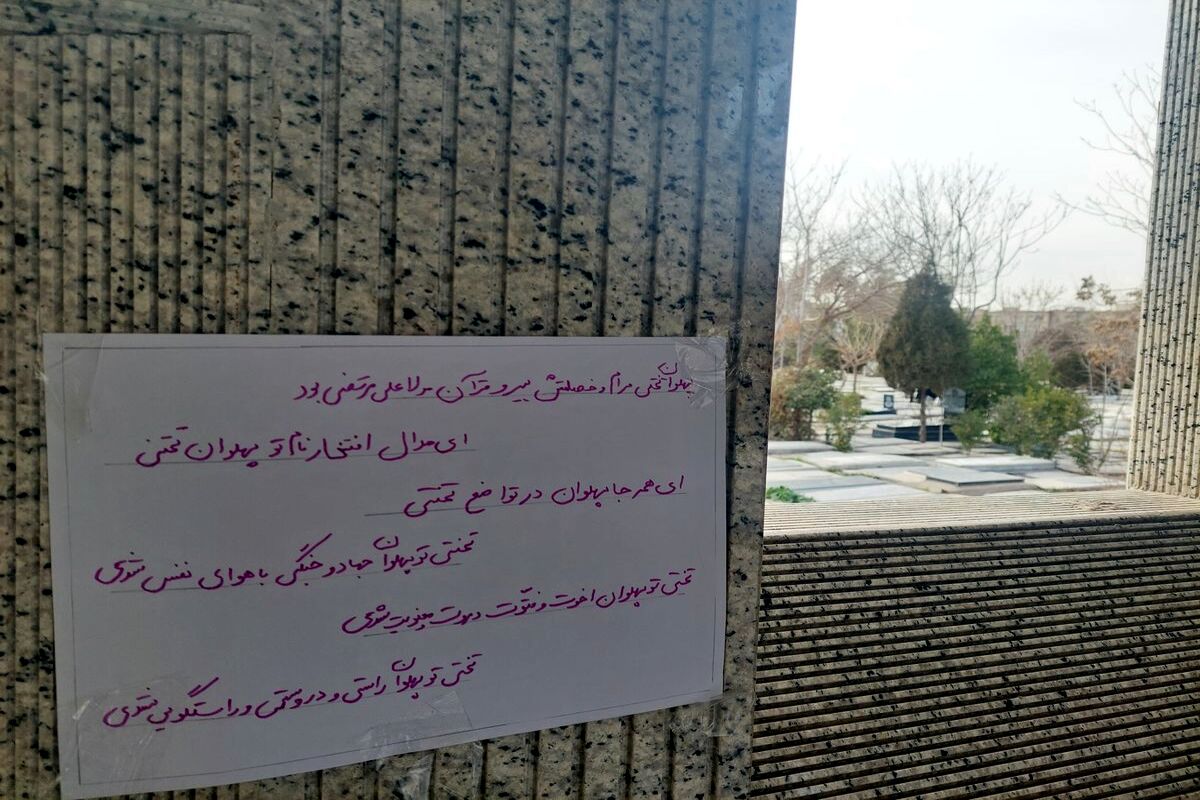 پهلوان تختی مرام و خصلتش پیرو قرآن مولا علی مرتضی بود
ای مدال افتخار نام تو پهلوان تختی
ای همه جا پهلوان در تواضع تختی
تختی تو پهلوان جهاد و جنگی با هوای نفس شوی
تختی تو پهلوان اخوت و فتوت و معنویت شوی
تختی تو پهلوان راستی و درستی و راستگویی شوی